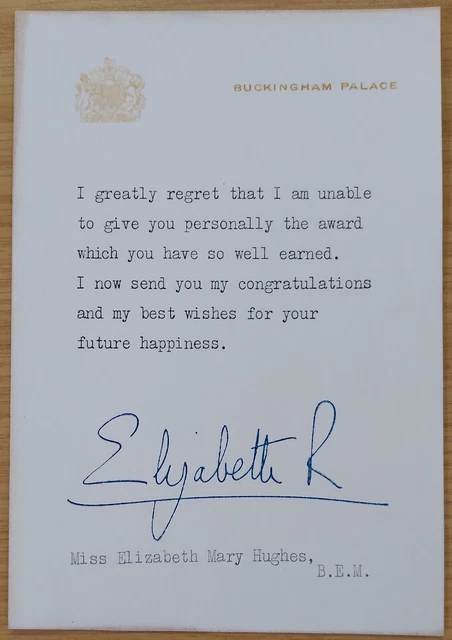 BUCKINGHAM PALACE
I greatly regret that I am unable
to give you personally the award
which you have so well earned.
I now send you my congratulations
and my best wishes for your
future happiness.
Elizabeth R
Miss Elizabeth Mary Hughes,
B.E.M.